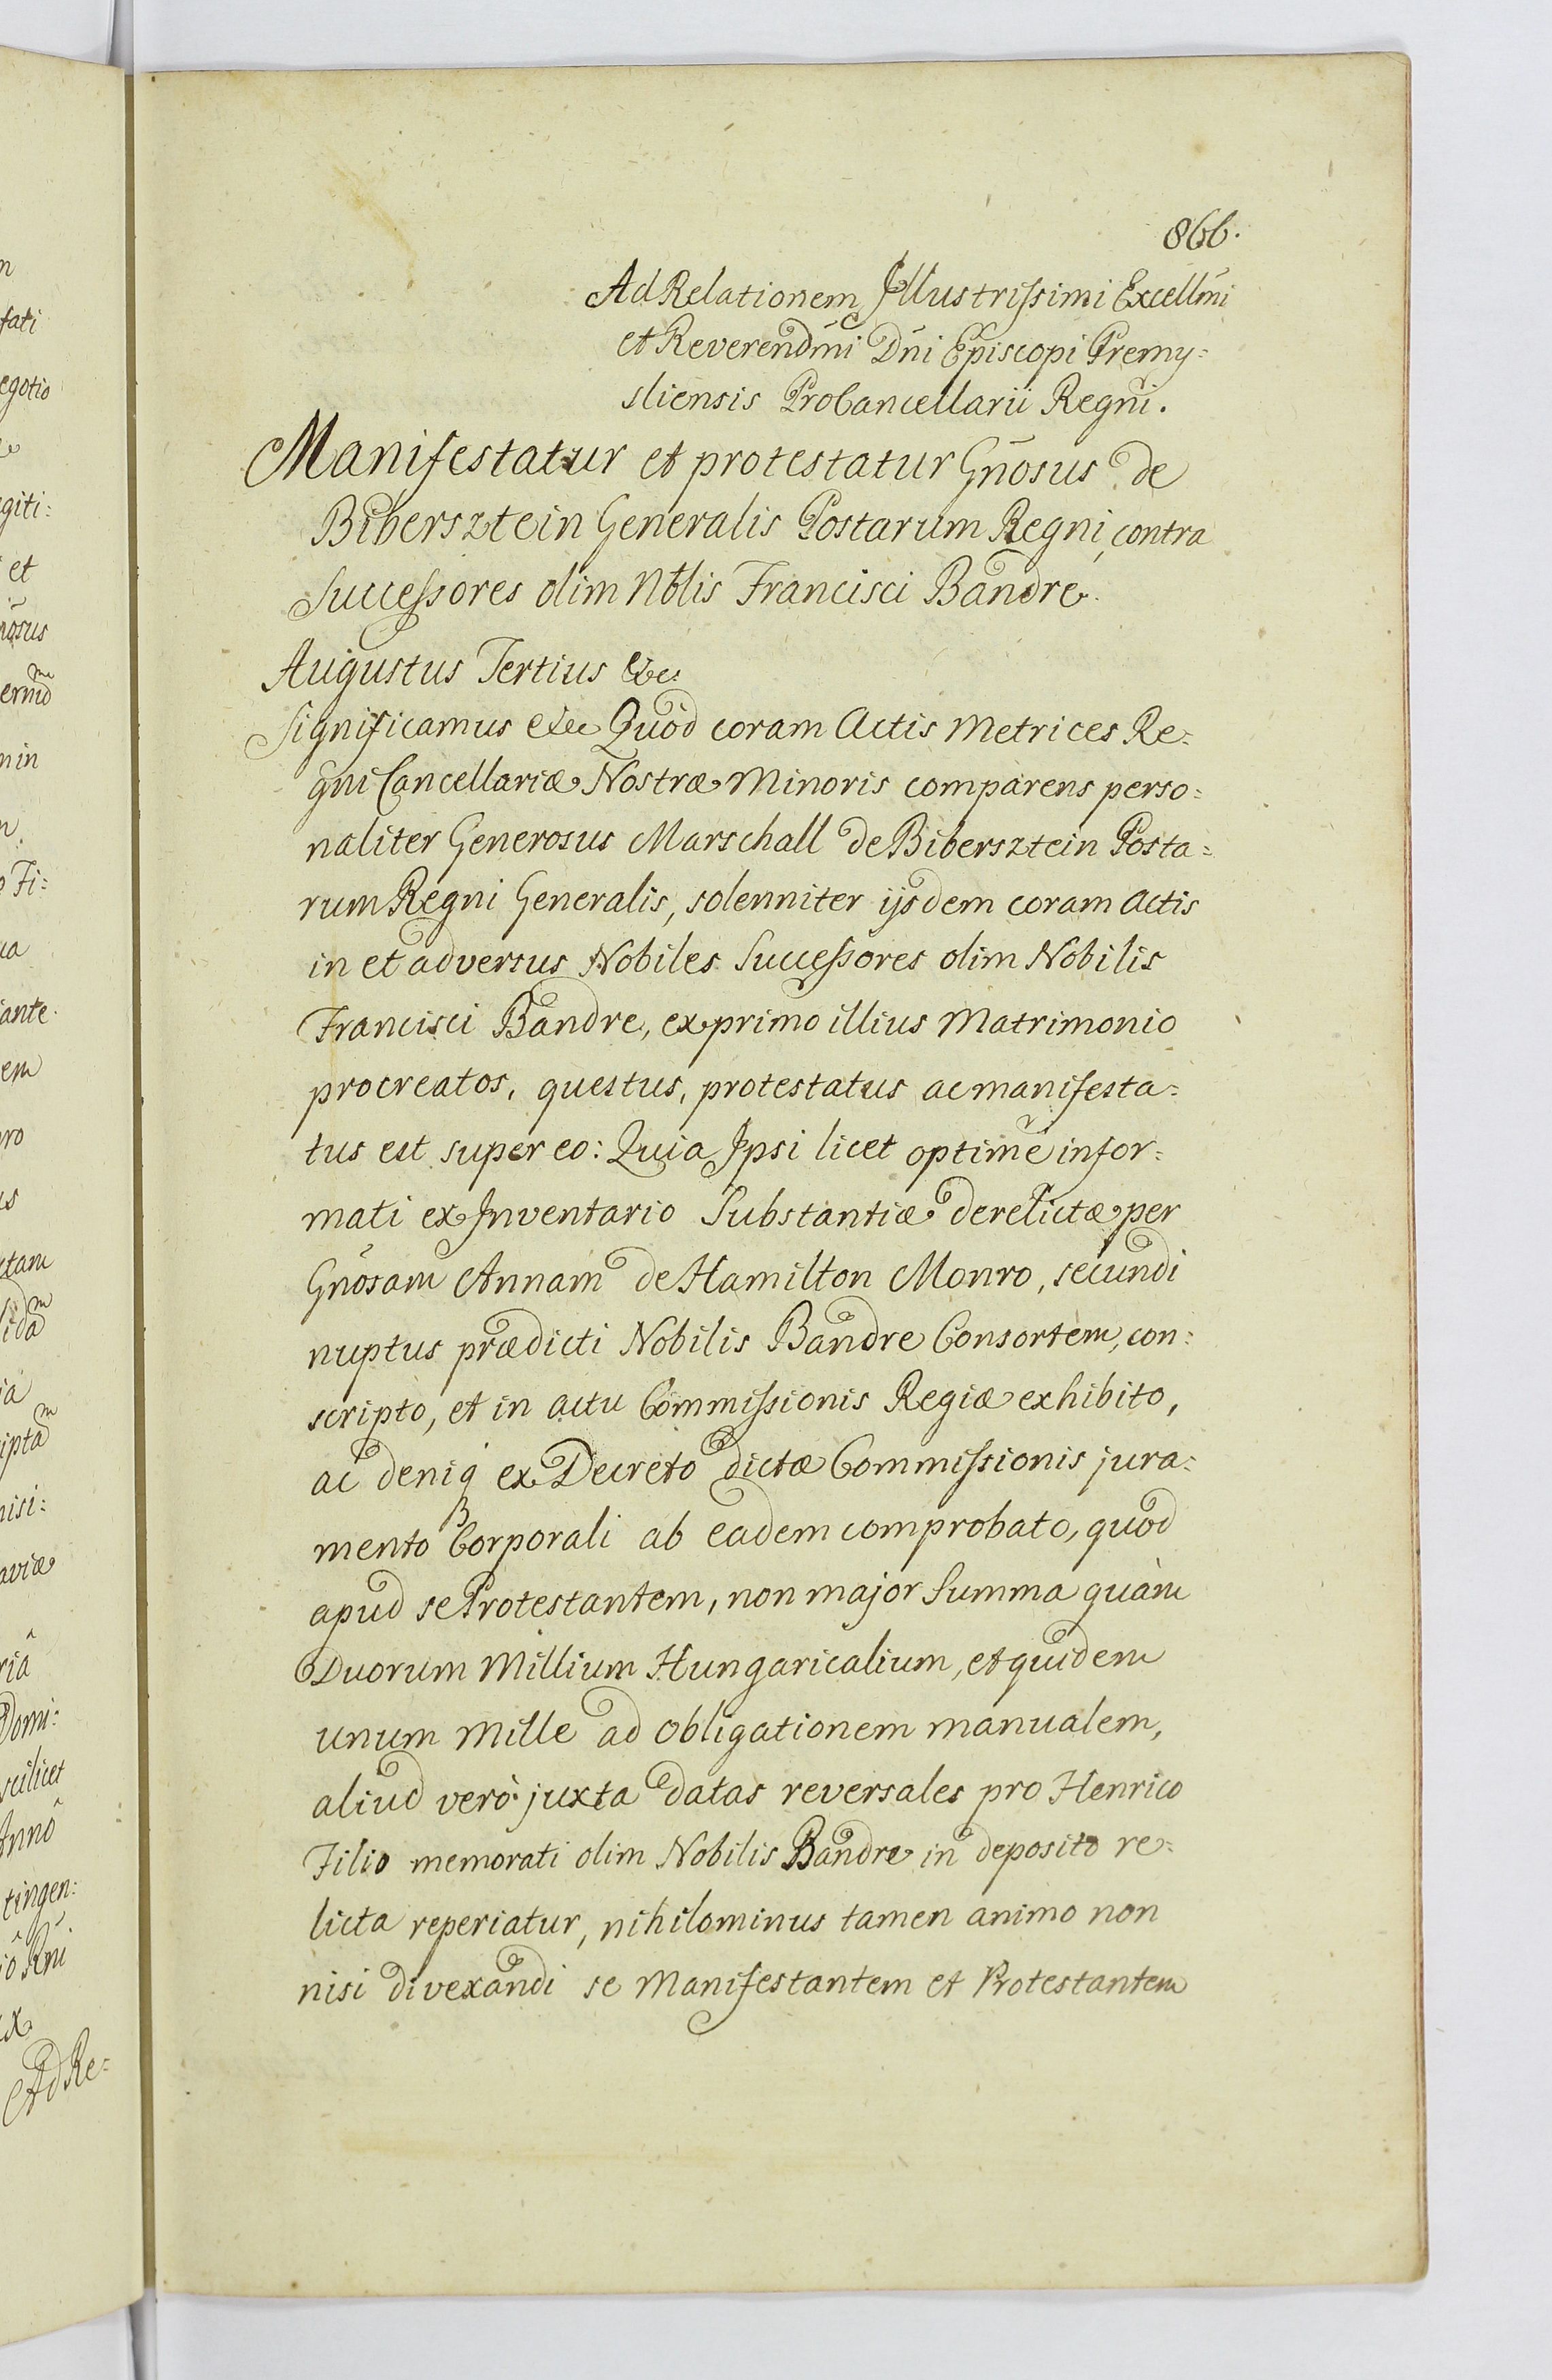 866.
Ad Relationem Illustrissimi Excellm̄i
et Reverendm̄i Dn̄i Episcopi Premy:
sliensis ProCancellarii Regni.
Manifestatur et protestatur Gn̄osus de
Bibersztein Generalis Postarum Regni, contra
Successores olim Nblis Francisci Bandre.
Augustus Tertius &c:
Significamus &c Quod coram Actis Metrices Re:
gni Cancellariæ Nostræ Minoris comparens perso:
naliter Generosus Marschall de Bibersztein Posta:
rum Regni Generalis, solenniter ijsdem coram Actis
in et adversus Nobiles Successores olim Nobilis
Francisci Bandre, ex primo illius Matrimonio
procreatos, questus, protestatus ac manifesta:
tus est super eo: Quia Ipsi licet optimè infor:
mati ex Inventario Substantiæ derelictæ per
Gn̄osam Annam de Hamilton Monro, secundi
nuptus prædicti Nobilis Bandre Consortem, con:
scripto, et in actu Commissionis Regiæ exhibito,
ac deniq ex Decreto dictæ Commissionis jura:
mento Corporali ab eadem comprobato, quod
apud se Protestantem, non major Summa quàm
Duorum Millium Hungaricalium, et quidem
unum Mille ad obligationem manualem,
aliud verò juxta datas reversales pro Henrico
Filio memorati olim Nobilis Bandre in deposito re:
licta reperiatur, nihilominus tamen animo non
nisi divexandi se Manifestantem et Protestantem
fati
egotio
giti:
et
nōsus
min
Fi:
ante
em
pro
nisi:
aviæ
riâ
Domi:
scilicet
Annô
tingen:
Ad Re: